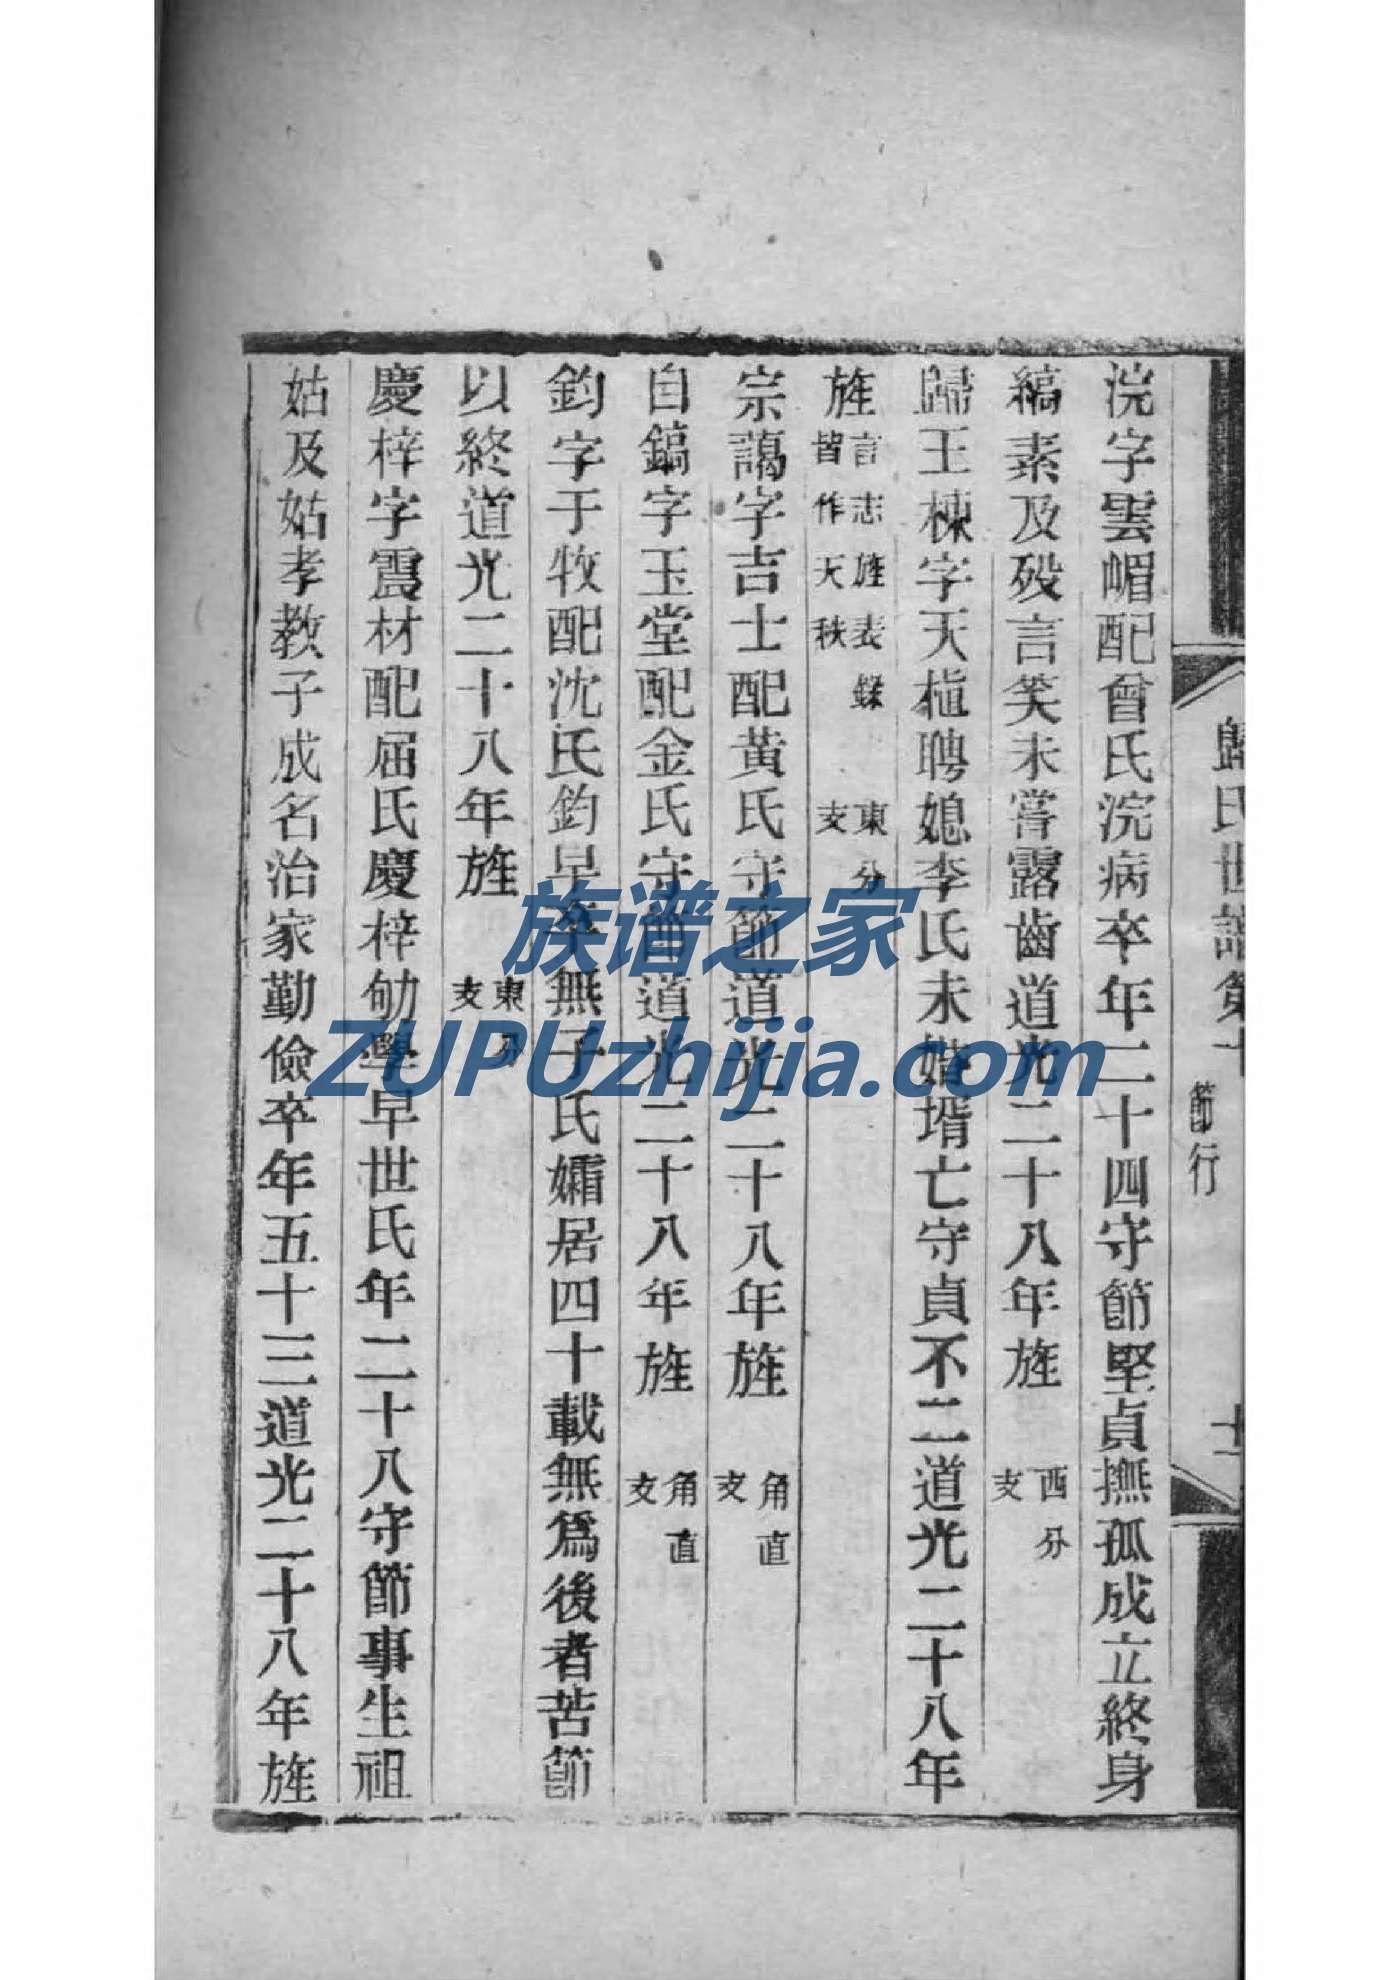 歸氏世譜第十
節行
十一
浣字雲嵋配曾氏浣病卒年二十四守節堅貞撫孤成立終身
縞素及殁言笑未嘗露齒道光二十八年旌 西分支
歸王棟字天植聘媳李氏未婚壻亡守貞不二道光二十八年
旌 言志旌表錄皆作天秩 東分支
宗譪字吉士配黄氏守節道光二十八年旌 角直支
自鎬字玉堂配金氏守節道光二十八年旌 角直支
鈞字于牧配沈氏鈞早卒無子氏孀居四十載無爲後者苦節
以終道光二十八年旌 東分支
慶梓字震材配屈氏慶梓劬學早世氏年二十八守節事生祖
姑及姑孝教子成名治家勤儉卒年五十三道光二十八年旌
族谱之家
ZUPUzhijia.com